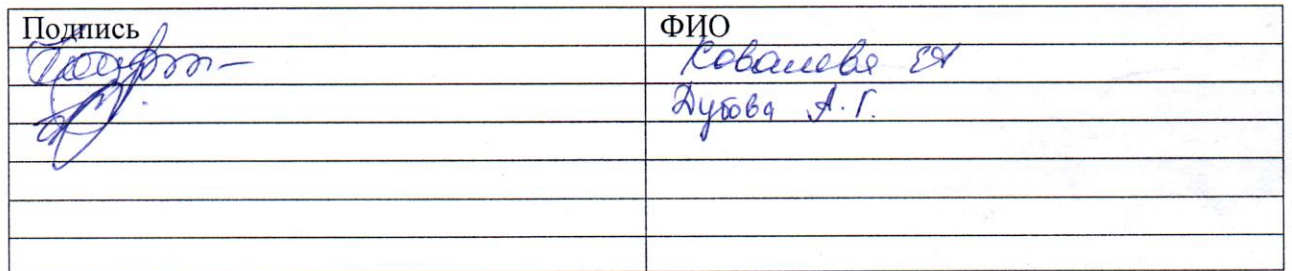 Подпись ФИО
Ковалева ЕА
Дубова А.Г.